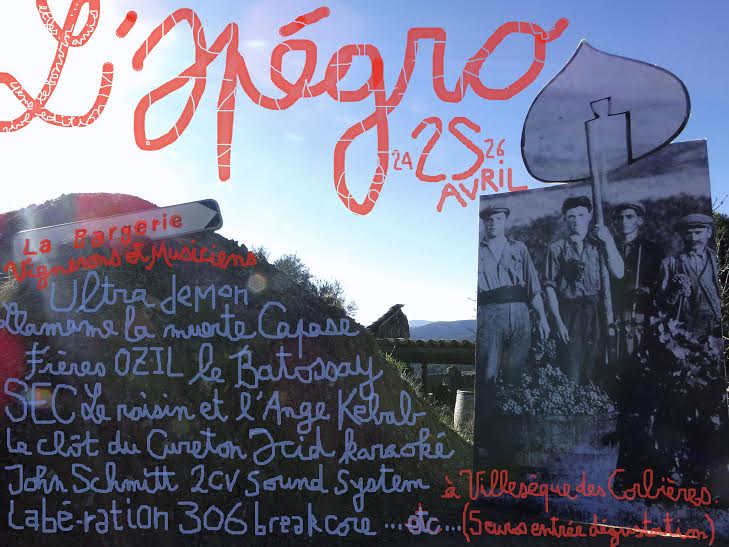 L'Apégro
24 25 26
AVRIL
La Bargerie
Vignerons & Musiciens
Ultra demon
llamame la muerte Capase
Frères OZIL le Batossay
SEC Le raisin et l'Ange Kebab
Le clôt du Cureton Acid karaoké
John Schmitt 2CV Sound System
Labé-ration 306 breakcore ...etc...
à Villesèque des Corbières.
(5 euros entrée dégustation)